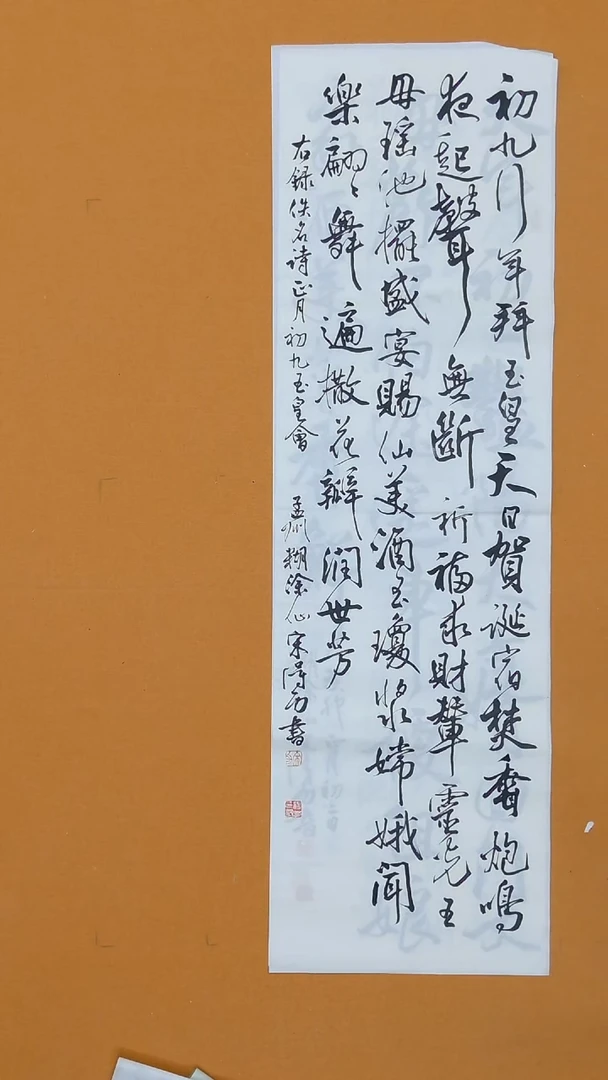 初九行年拜玉皇天日賀誕宿焚香炮鳴
夜起聲無斷祈福求財輦靈光王
母瑶池擺盛宴賜仙美酒玉瓊漿嫦娥聞
樂翩〻舞遍撒花瓣潤世芳
右録佚名詩正月初九玉皇會 孟州糊涂仙宋得書